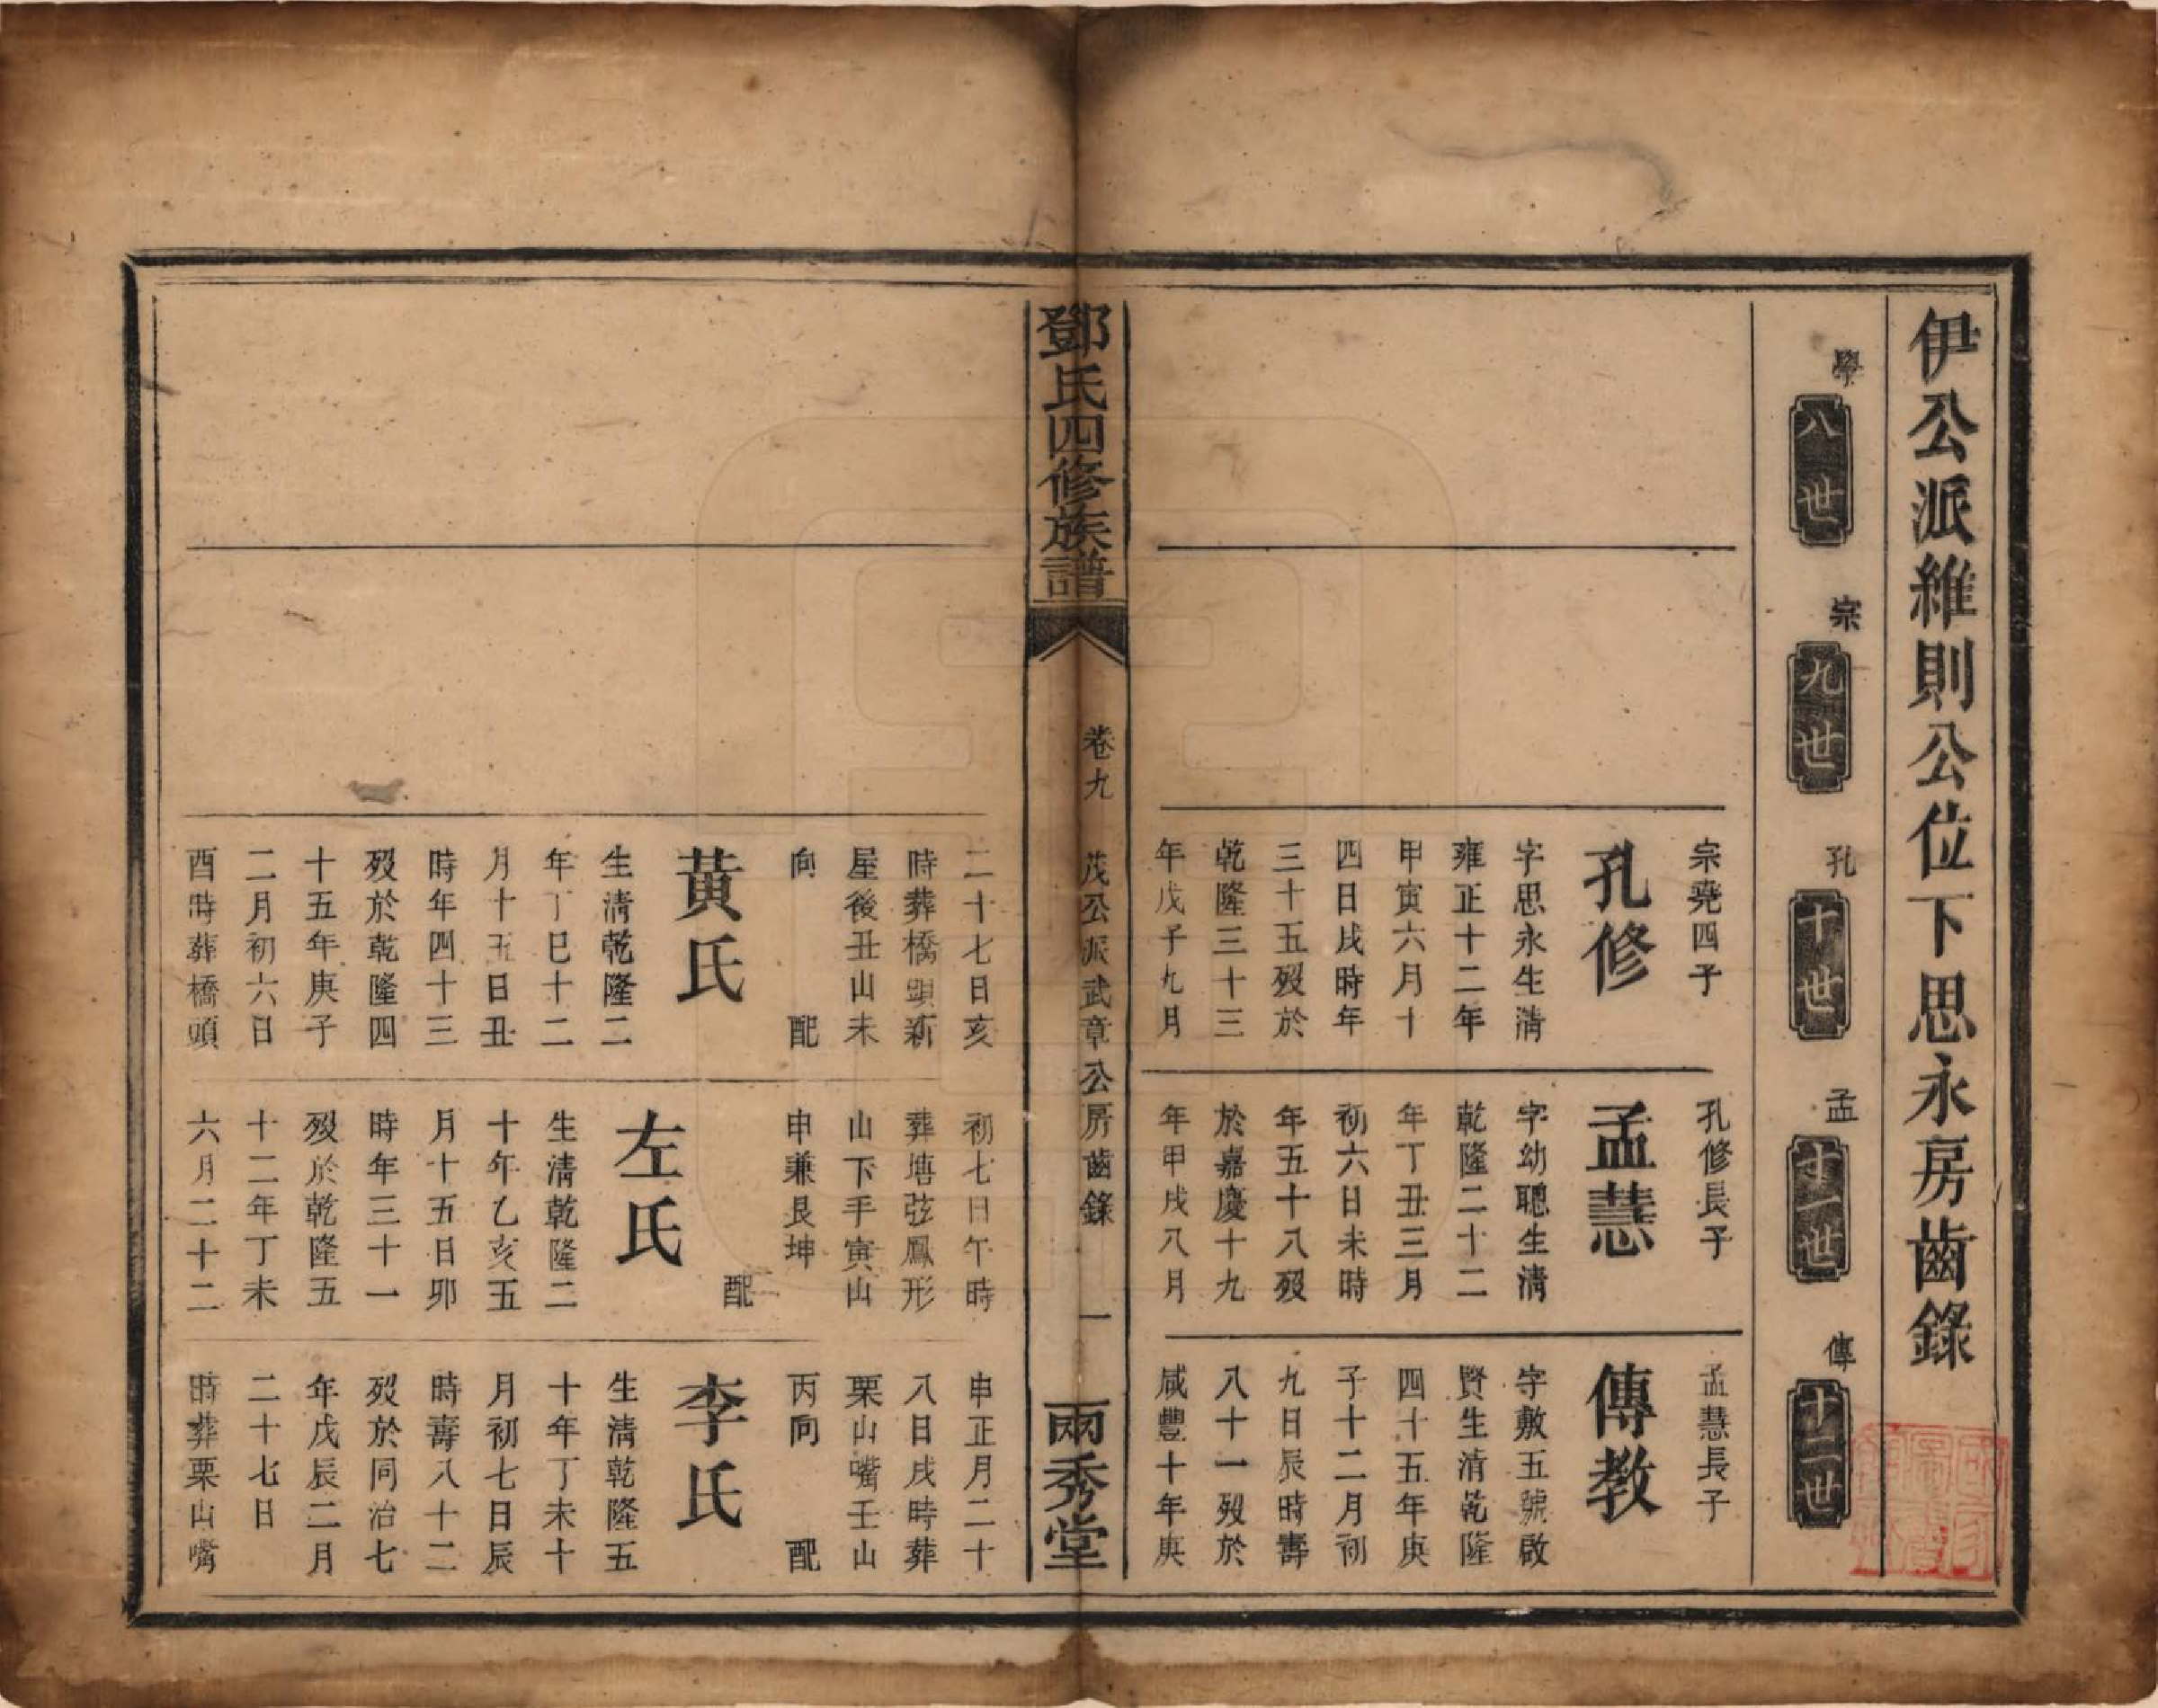 伊公派維則公位下思永房齒錄
學
八世
宗
九世
孔
十世
孟
十一世
傳
十二世
宗堯四子
孔修
字思永生清
雍正十二年
甲寅六月十
四日戌時年
三十五歿於
乾隆三十三
年戊子九月
孔修長子
孟慧
字幼聰生清
乾隆二十二
年丁丑三月
初六日未時
年五十八歿
於嘉慶十九
年甲戌八月
孟慧長子
傳教
字敷五號啟
賢生清乾隆
四十五年庚
子十二月初
九日辰時壽
八十一歿於
咸豐十年庚
鄧氏四修族譜
卷九
茂公派武章公房齒錄
一
兩秀堂
二十七日亥
時葬橋頭新
屋後丑山未
向 配
黃氏
生清乾隆二
年丁巳十二
月十五日丑
時年四十三
歿於乾隆四
十五年庚子
二月初六日
酉時葬橋頭
初七日午時
葬塘弦鳳形
山下手寅山
申兼艮坤
配
左氏
生清乾隆二
十年乙亥五
月十五日卯
時年三十一
歿於乾隆五
十二年丁未
六月二十二
申正月二十
八日戌時葬
栗山嘴壬山
丙向 配
李氏
生清乾隆五
十年丁未十
月初七日辰
時壽八十二
歿於同治七
年戊辰二月
二十七日
時葬栗山嘴